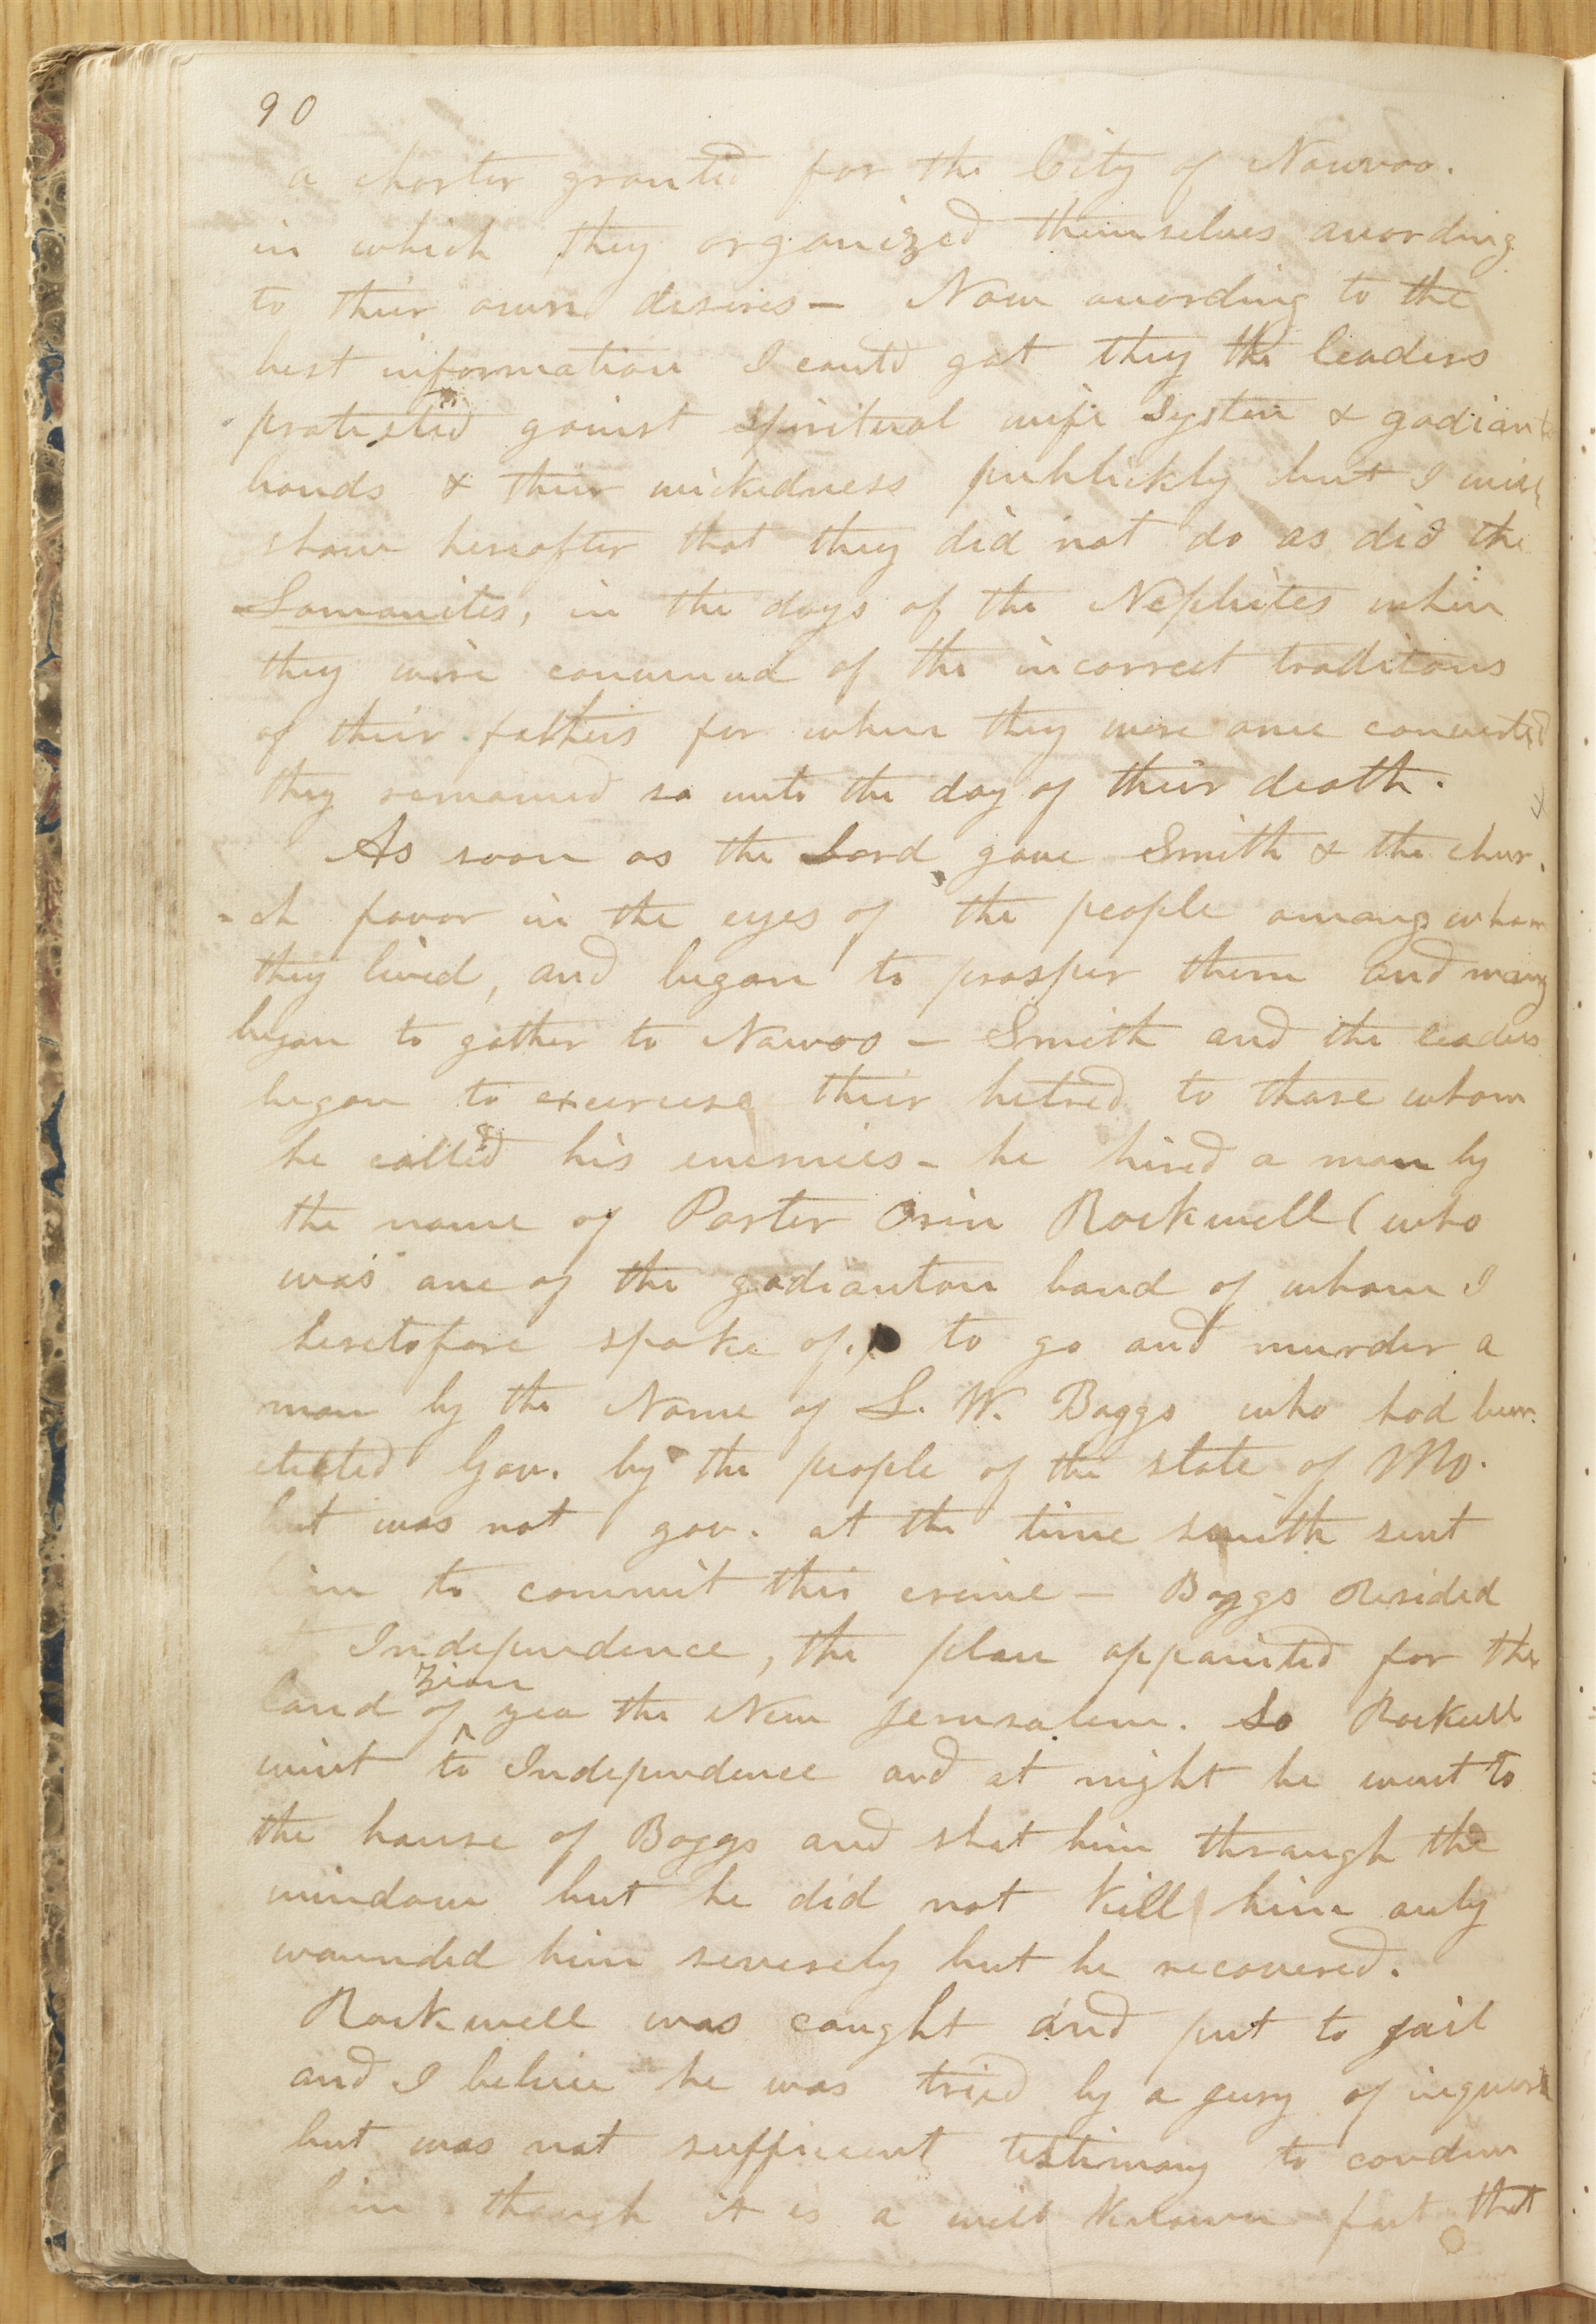 90
a charter granted for the City of Nauvoo.
in which they organized themselves according
to their own desires — Now according to the
best information I could get they the leaders
protested gainst spiritual wife system & gadiant
bands & their wickedness publickly but I will
show hereafter that they did not do as did the
Lamanites, in the days of the Nephites when
they were convinced of the incorrect traditions
of their fathers for when they were once converted
they remained so unto the day of their death.
As soon as the Lord gave Smith & the chur-
-ch favor in the eyes of the people among whom
they lived, and began to prosper them and many
began to gather to Nauvoo — Smith and the leaders
began to exercise their hetred to those whom
he called his enemies — he hired a man by
the name of Porter Orin Rockwell (who
was one of the gadianton band of whom I
heretofore spoke of,) to go and murder a
man by the Name of L. W. Boggs who had been
elected Gov. by the people of the state of Mo.
but was not gov. at the time smith sent
him to commit this crime — Boggs Resided
at Independence, the place appointed for the
land of ^Zion yea the New Jerusalem. So Rockwell
went to Independence and at night he went to
the house of Boggs and shot him through the
window but he did not kill him only
wounded him severely but he recovered.
Rockwell was caught and put to jail
and I believe he was tried by a jury of
but was not sufficient testimony to condem
him though it is a well known fact that